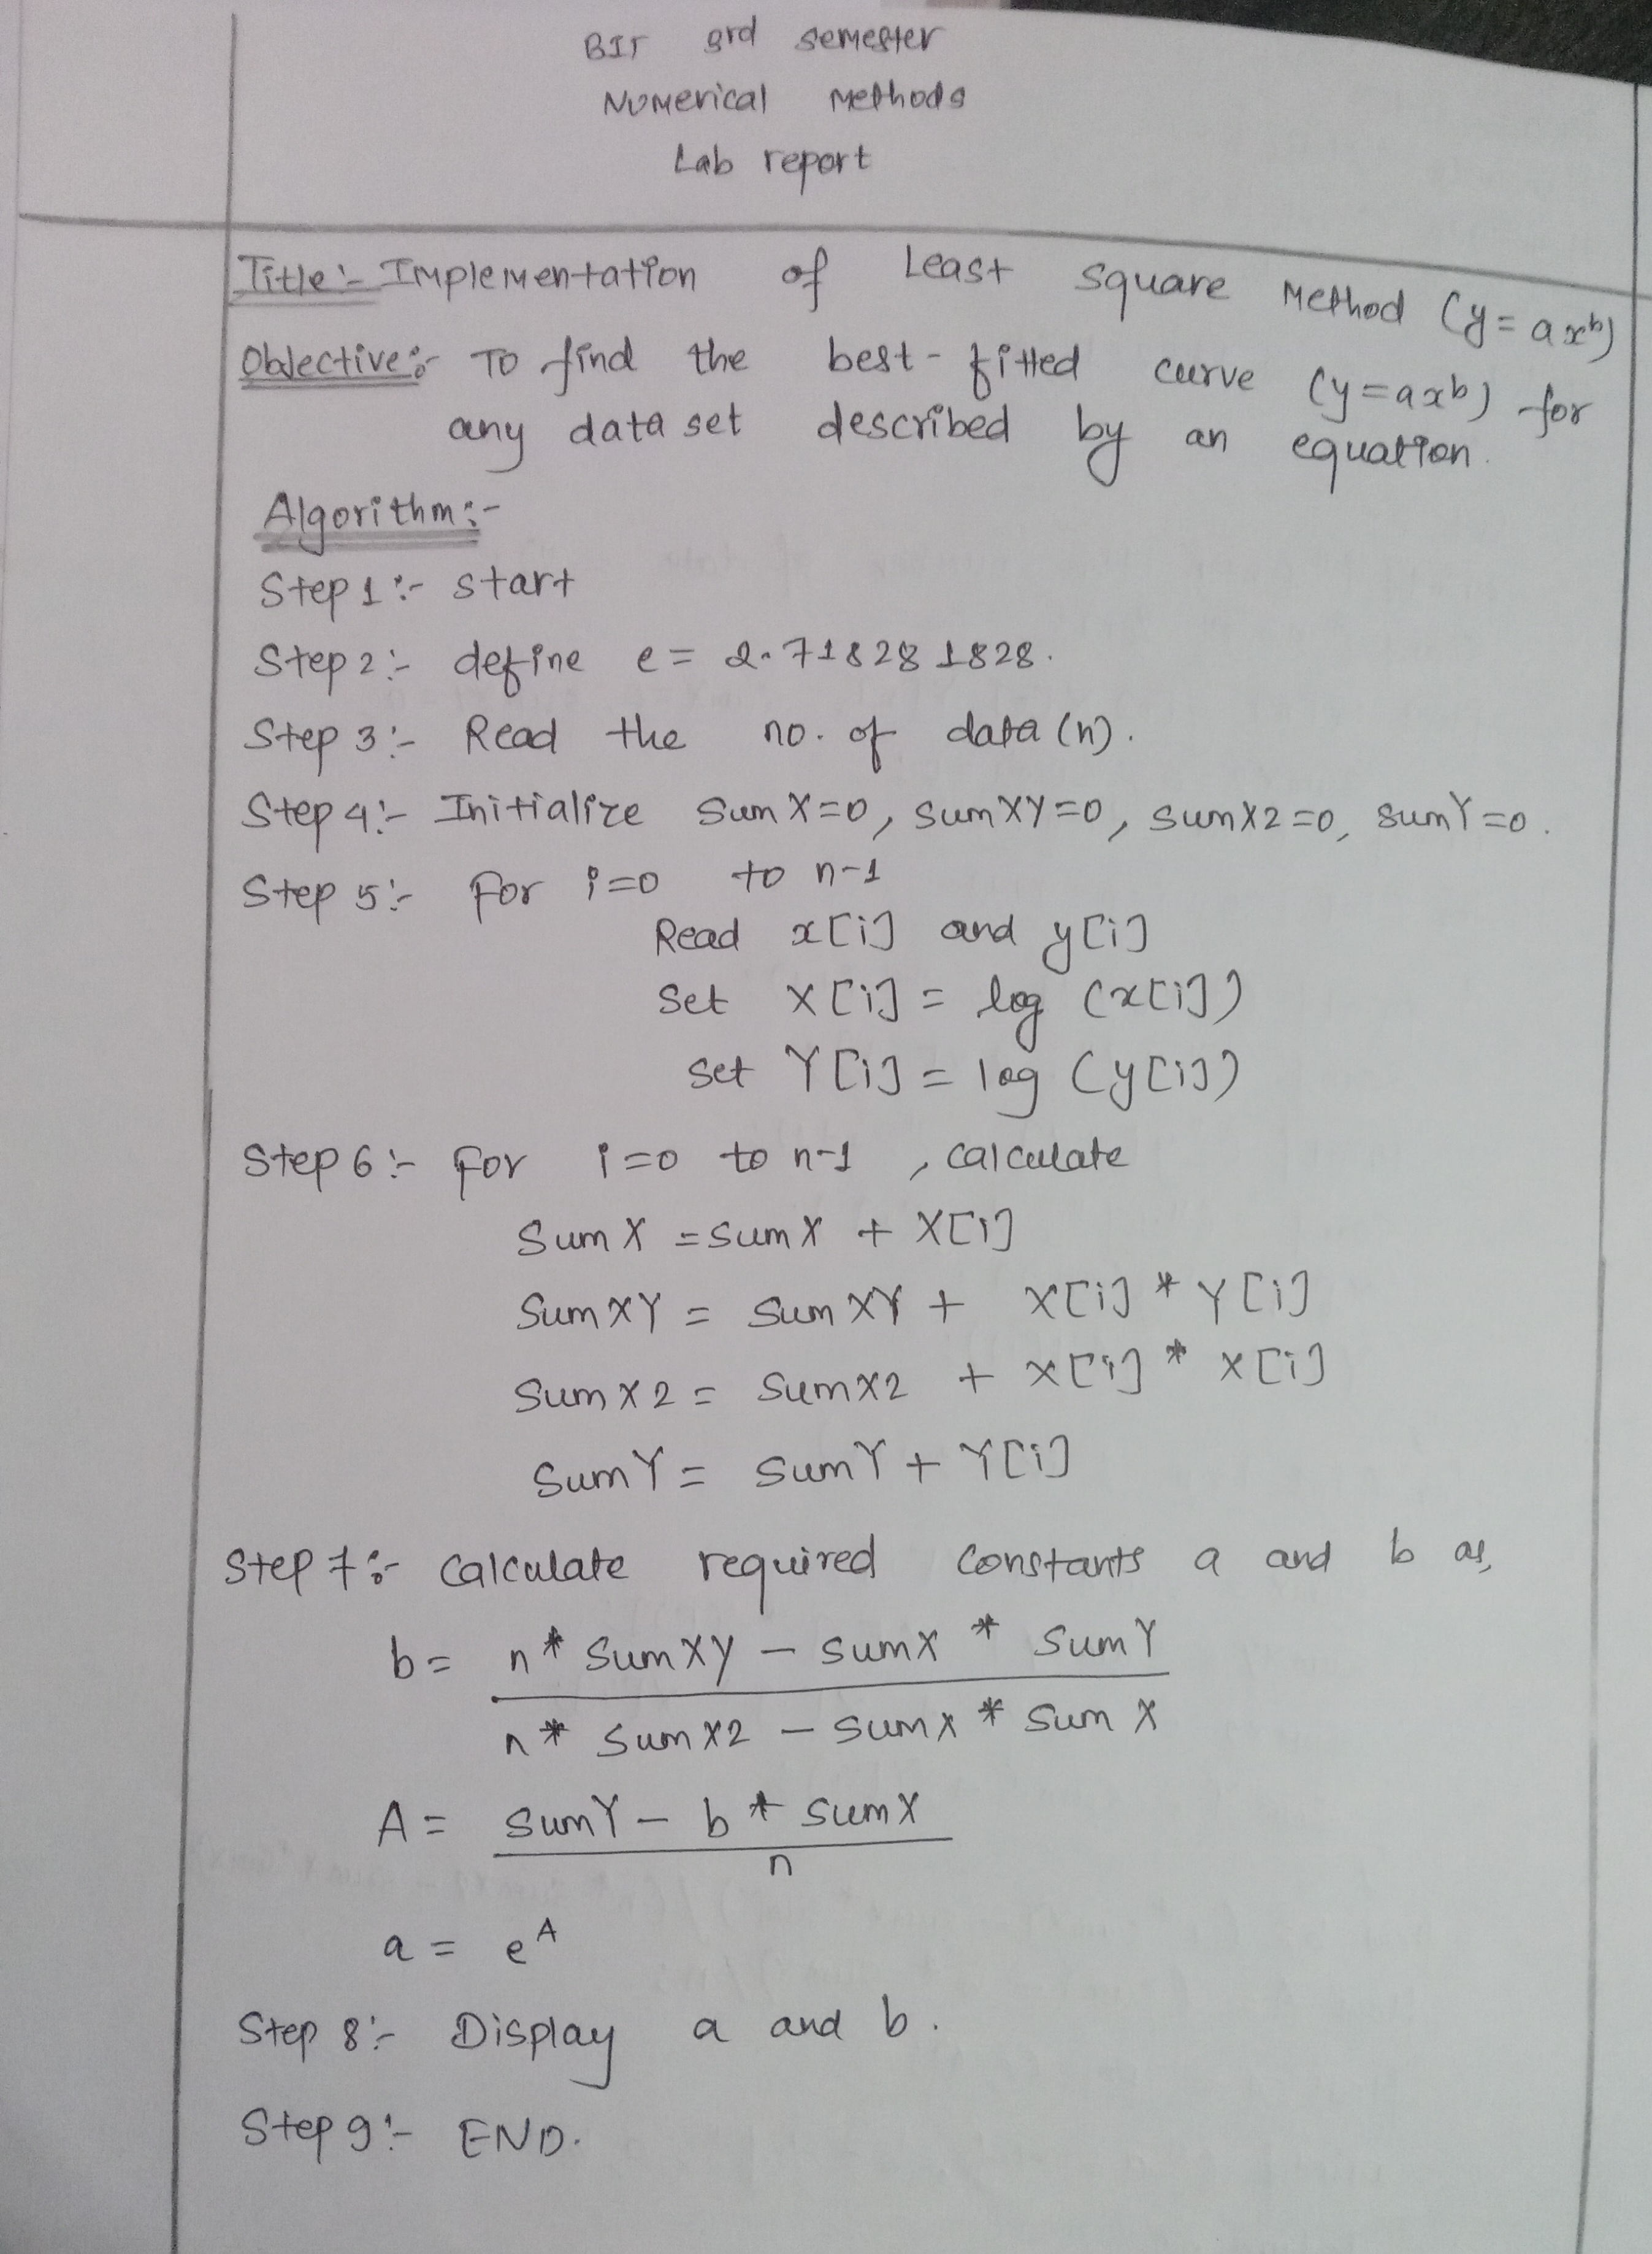 BIT 3rd semester
Numerical Methods
Lab report
Title:- Implementation of Least Square Method (y=ax^b)
Objective:- To find the best-fitted curve (y=ax^b) for
any data set described by an equation.
Algorithm:-
Step 1:- start
Step 2:- define e = 2.718281828.
Step 3:- Read the no. of data (n).
Step 4:- Initialize sumX=0, sumXY=0, sumX2=0, sumY=0.
Step 5:- For i=0 to n-1
Read x[i] and y[i]
Set X[i] = log (x[i])
Set Y[i] = log (y[i])
Step 6:- For i=0 to n-1, calculate
SumX = sumX + X[i]
SumXY = SumXY + X[i] * Y[i]
SumX2 = SumX2 + X[i] * X[i]
SumY = SumY + Y[i]
Step 7:- Calculate required constants a and b as,
b = n* SumXY - sumX * SumY
n* SumX2 - SumX * Sum X
A = SumY - b * SumX
n
a = e^A
Step 8:- Display a and b.
Step 9:- END.